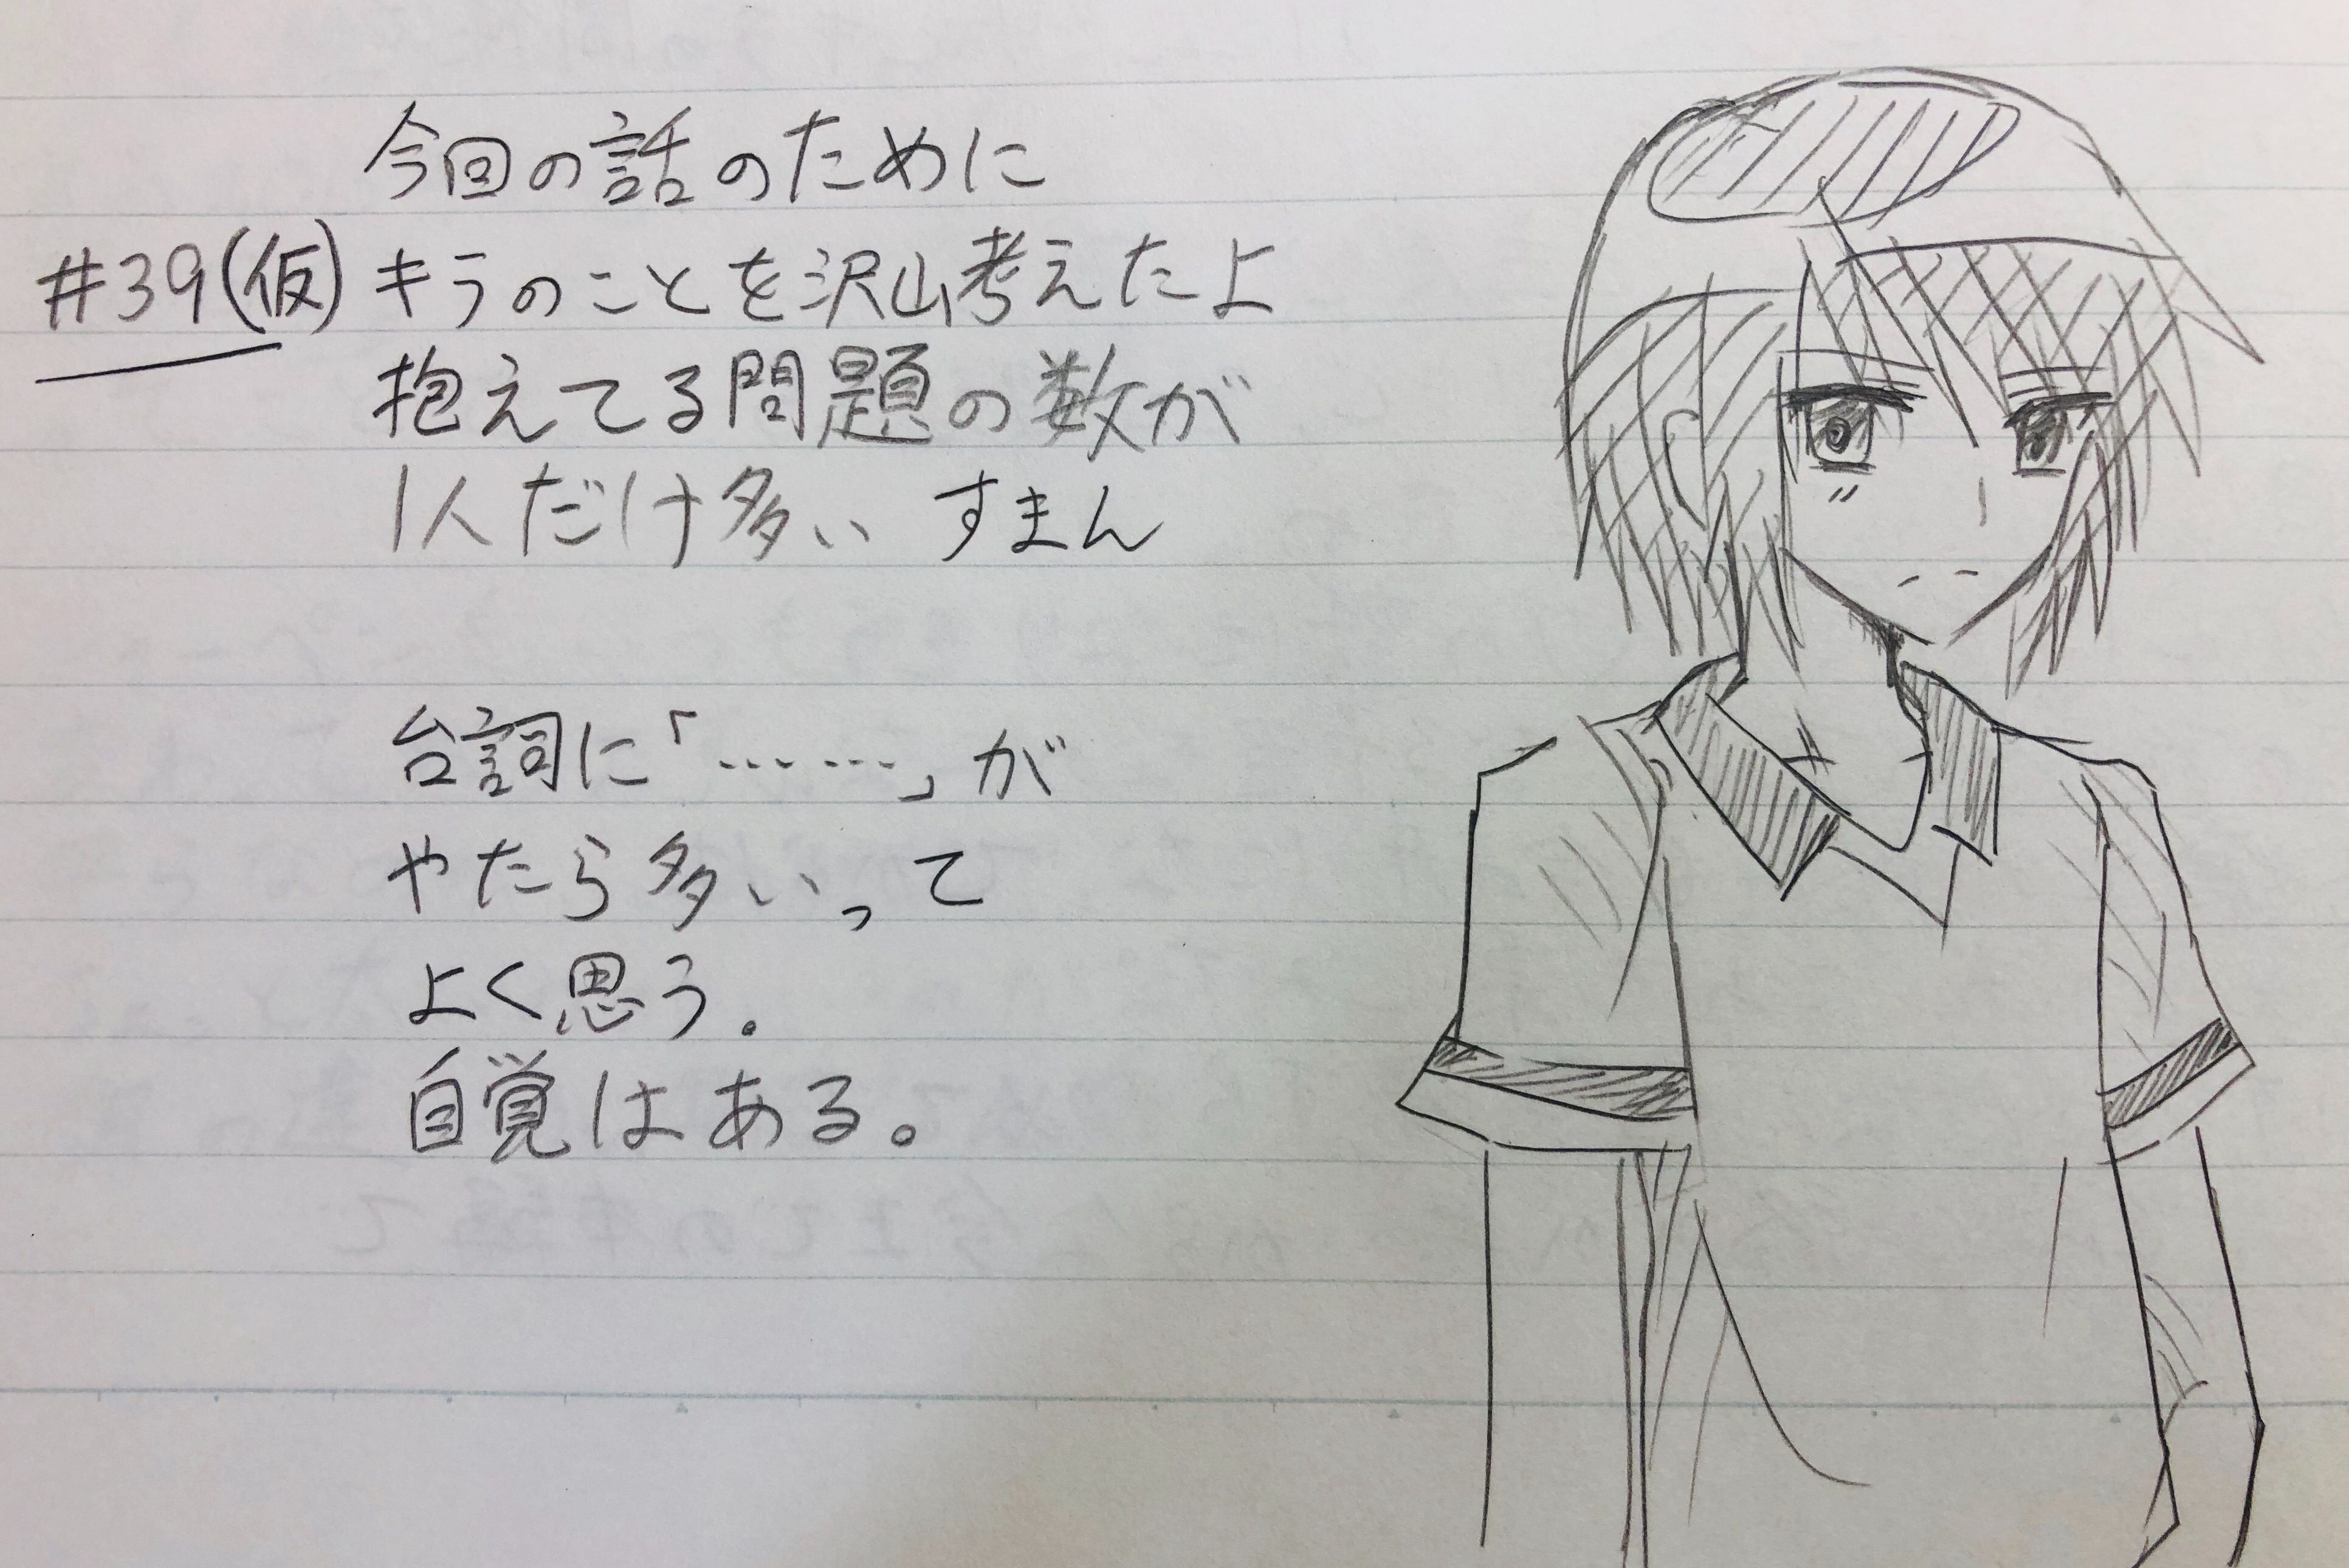 今回の話のために
#39(仮)
キラのことを沢山考えたよ
抱えてる問題の数が
1人だけ多い すまん
台詞に「……」が
やたら多いって
よく思う。
自覚はある。